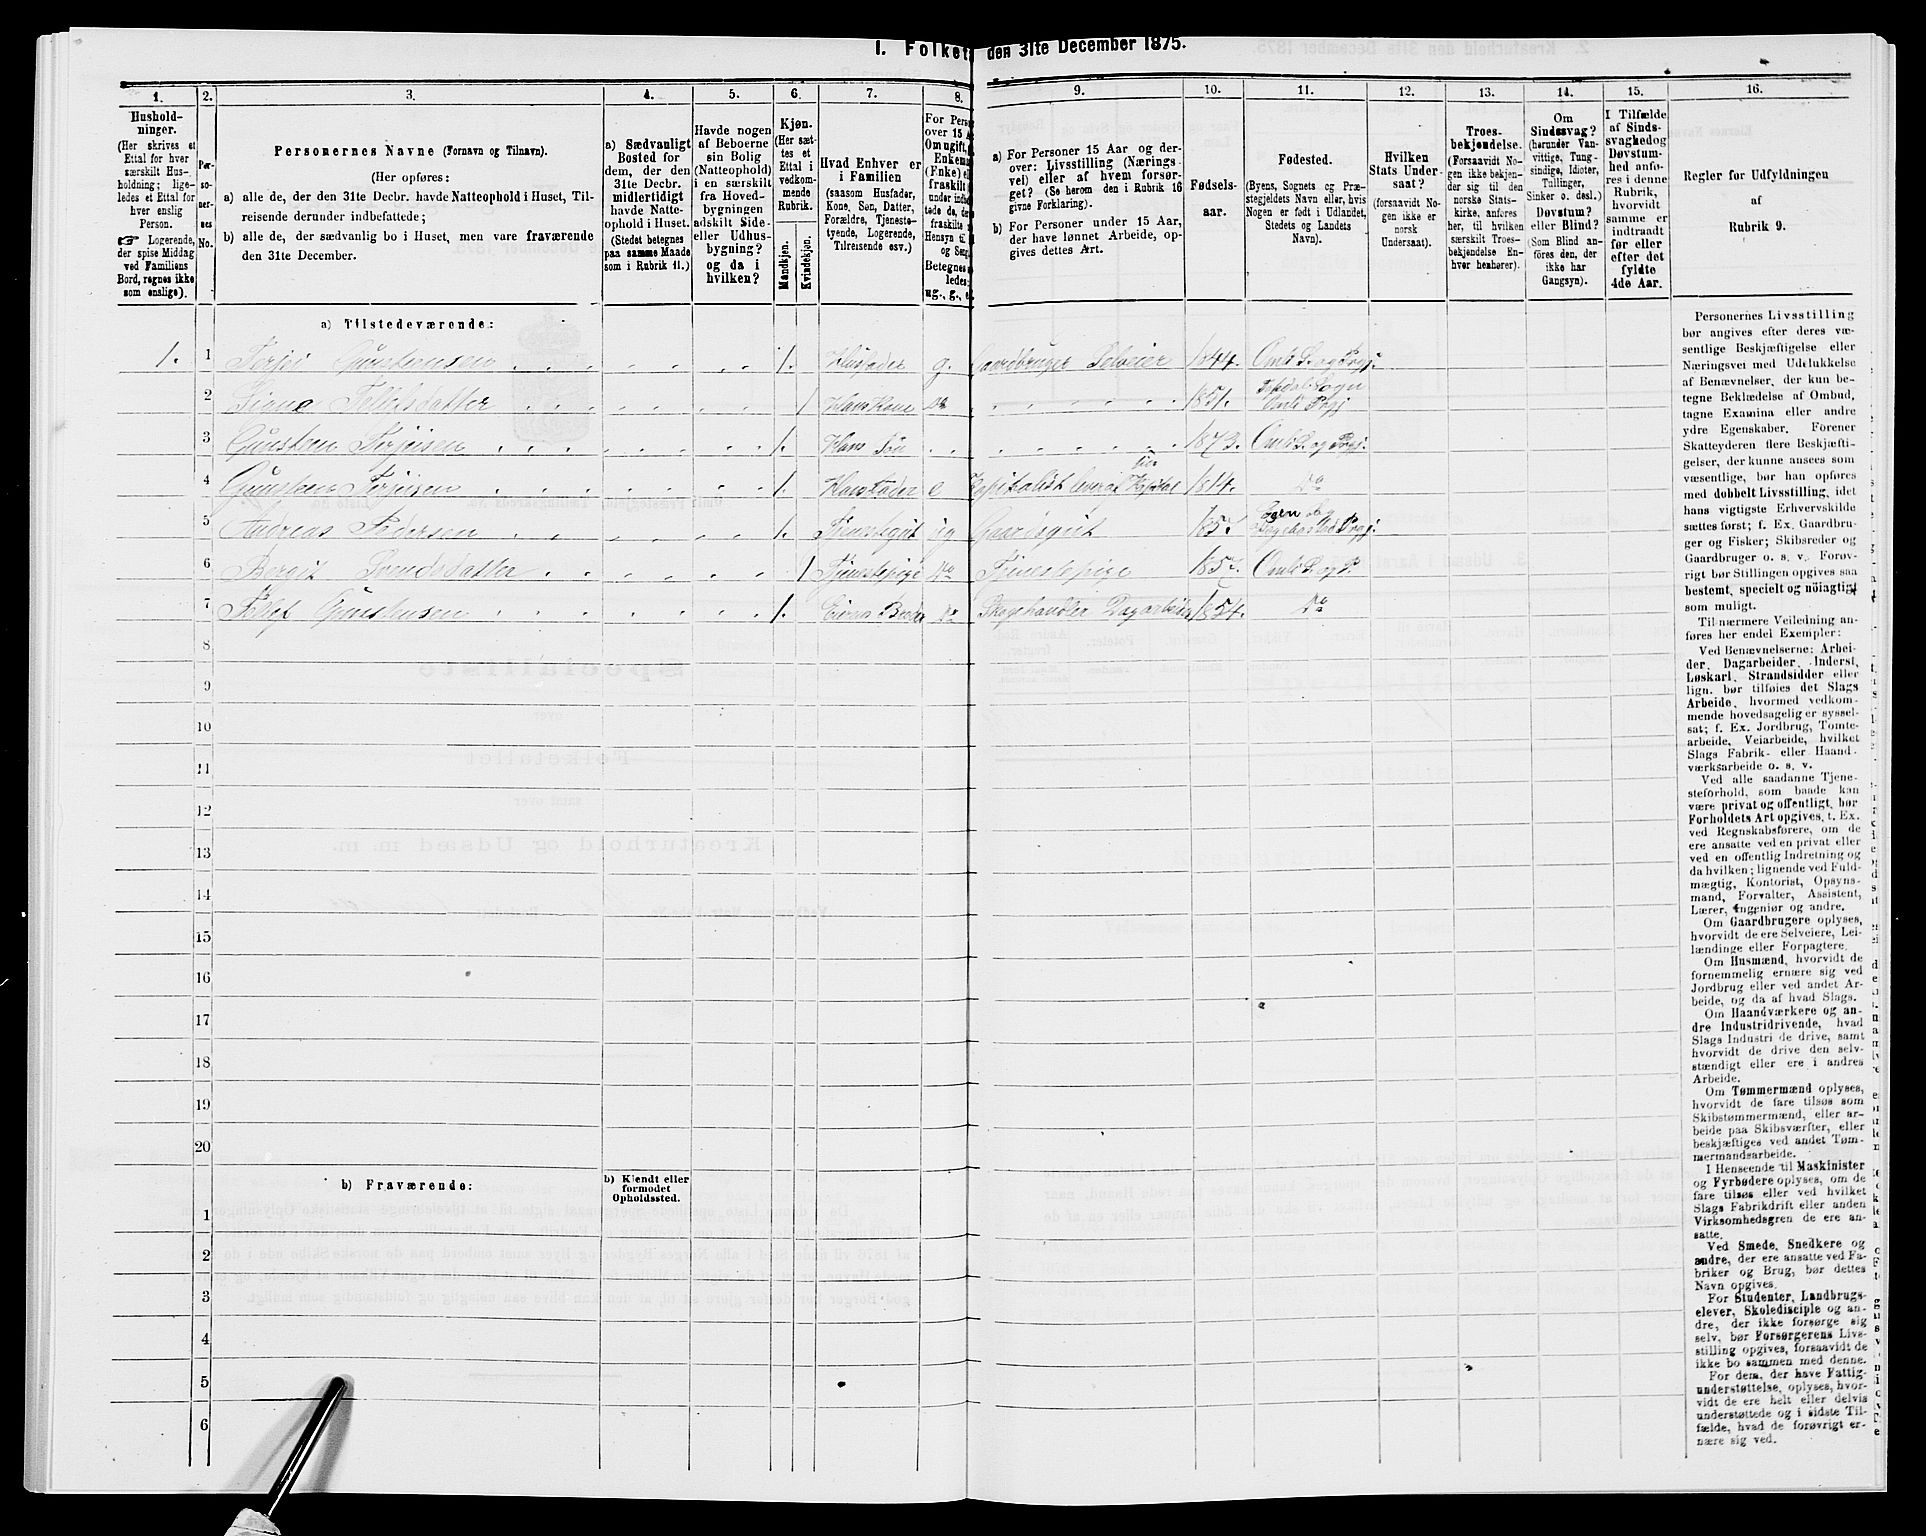 1. Folket den 31te December 1875.
1. 2. 3. 4. 5. 6. 7. 8. 9. 10. 11. 12. 13. 14. 15. 16.
Hushold-
ninger.
(Her skrives et
Ettal for hver
særskilt Hus-
holdning; lige-
ledes et Ettal for
hver enslig
Person.
☞ Logerende,
der spise Middag
ved Familiens
Bord, regnes ikke
som enslige).
Per-
so-
ner-
nes
No.
Personernes Navne (Fornavn og Tilnavn).
(Her opføres:
a) alle de, der den 31te Decbr. havde Natteophold i Huset, Til-
reisende derunder indbefattede;
b) alle de, der sædvanlig bo i Huset, men vare fraværende
den 31te December.
a) Sædvanligt
Bosted for
dem, der den
31te Decbr.
midlertidigt
havde Natte-
ophold i Huset.
(Stedet betegnes
paa samme Maade
som i Rubrik 11.)
Havde nogen
af Beboerne
sin Bolig
(Natteophold)
i en særskilt
fra Hoved-
bygningen
adskilt Side-
eller Udhus-
bygning?
og da i
hvilken?
Kjøn.
(Her sæt-
tes et
Ettal i
vedkom-
mende
Rubrik.
Mandkjøn.
Kvindekjøn.
Hvad Enhver er
i Familien
(saasom Husfader,
Kone, Søn, Datter,
Forældre, Tjeneste-
tyende, Logerende,
Tilreisende osv.)
For Perso
over 15 A
Om ugift,
Enkem
(Enke) e
fraskilt
under
tede da,
fraskilte
Hensyn til
og Sæng
Betegnes
ledes:
ug., g., e
a) For Personer 15 Aar og der-
over: Livsstilling (Nærings-
vei) eller af hvem forsør-
get? (Se herom den i Rubrik 16
givne Forklaring).
b) For Personer under 15 Aar,
der have lønnet Arbeide, op-
gives dettes Art.
Fødsels-
aar.
Fødested.
(Byens, Sognets og Præ-
stegjeldets Navn eller, hvis
Nogen er født i Udlandet,
Stedets og Landets
Navn).
Hvilken
Stats Under-
saat?
(forsaavidt No-
gen ikke er
norsk
Undersaat).
Troes-
bekjendelse.
(Forsaavidt No-
gen ikke bekjen-
der sig til den
norske Stats-
kirke, anføres
her, til hvilken
særskilt Troes-
bekjendelse En-
hver henhører).
Om
Sindssvag?
(herunder Van-
vittige, Tung-
sindige, Idioter,
Tullinger,
Sinker o. desl.)
Døvstum?
eller Blind?
(Som Blind an-
føres den, der
ikke har
Gangsyn).
I Tilfælde
af Sinds-
svaghed og
Døvstum-
hed anfø-
res i denne
Rubrik,
hvorvidt
samme er
indtraadt
før eller
efter det
fyldte
4de Aar.
Regler for Udfyldningen
af
Rubrik 9.
a) Tilstedeværende:
1. 1 Terjei Gunstensen 1. Husfader g. Gaardbruger Selveier 1844. Omli S. og Prgj.
2 Signe Tellefsdatter 1 Hans Kone Do 1851. Sogn Omli Prgj
3 Gunsteen Terjeisen 1. Hans Søn 1873. Omli S. og Prgj.
4 Gunsteen Terjeisen 1. Hans Fader e Kapitalist lever af sin Kapital 1814. Do
5 Andreas Pedersen 1. Tjenestgut ug Gaardsgut Sogn og Prgj.
6 Bergit 1 Tjenestepige Do Tjenestepige Omli S. og P.
7 Gunstensen 1. Do Dagarbeider 1854. Do
8
9
10
11
12
13
14
15
16
17
18
19
20
b) Fraværende:
b) Kjendt eller
formodet
Opholdssted.
1
2
3
4
5
6
Personernes Livsstilling
bør angives efter deres væ-
sentlige Beskjæftigelse eller
Næringsvei med Udelukkelse
af Benævnelser, der kun be-
tegne Beklædelse af Ombud,
tagne Examina eller andre
ydre Egenskaber. Forener
Skatteyderen flere Beskjæfti-
gelser, der kunne ansees som
væsentlige, bør han opføres
med dobbelt Livsstilling, idet
hans vigtigste Erhvervskilde
sættes først; f. Ex. Gaardbru-
ger og Fisker; Skibsreder og
Gaardbruger o. s. v. Forøv-
rigt bør Stillingen opgives saa
bestemt, specielt og nøiagtigt
som muligt.
Til nærmere Veiledning an-
føres her endel Exempler:
Ved Benævnelserne: Arbei-
der, Dagarbeider, Inderst,
Løskarl, Strandsidder eller
lign. bør tilføies det Slags
Arbeide, hvormed vedkom-
mende hovedsagelig er syssel-
sat; f. Ex. Jordbrug, Tomte-
arbeide, Veiarbeide, hvilket
Slags Fabrik- eller Haand-
værksarbeide o. s. v.
Ved alle saadanne Tjene-
steforhold, som baade kan
være privat og offentligt, bør
Forholdets Art opgives, t. Ex.
ved Regnskabsførere, om de
ere ansatte ved en privat eller
ved en offentlig Indretning og
da hvilken; lignende ved Fuld-
mægtig, Kontorist, Opsyns-
mand, Forvalter, Assistent,
Lærer, Ingeniør og andre.
Om Gaardbrugere oplyses,
hvorvidt de ere Selveiere, Lei-
lændinge eller Forpagtere.
Om Husmænd, hvorvidt de
fornemmelig ernære sig ved
Jordbrug eller ved andet Ar-
beide, og da af hvad Slags.
Om Haandværkere og an-
dre Industridrivende, hvad
Slags Industri de drive, samt
hvorvidt de drive den selv-
stændigt eller ere i andres
Arbeide.
Om Tømmermænd oplyses,
hvorvidt de fare tilsøs som
Skibstømmermænd, eller ar-
beide paa Skibsværfter, eller
beskjæftiges ved andet Tøm-
mermandsarbeide.
I Henseende til Maskinister
og Fyrbødere oplyses, om de
fare tilsøs eller ved hvilket
Slags Fabrikdrift eller anden
Virksomhedsgren de ere an-
satte.
Ved Smede, Snedkere og
andre, der ere ansatte ved Fa-
briker og Brug, bør dettes
Navn opgives.
For Studenter, Landbrugs-
elever, Skoledisciple og an-
dre, der ikke forsørge sig
selv, bør Forsørgerens Livs-
stilling opgives, forsaavidt de
ikke bo sammen med denne.
For dem, der have Fattig-
understøttelse, oplyses, hvor-
vidt de ere helt eller delvis
understøttede og i sidste Til-
fælde, hvad de forøvrigt er-
nære sig ved.